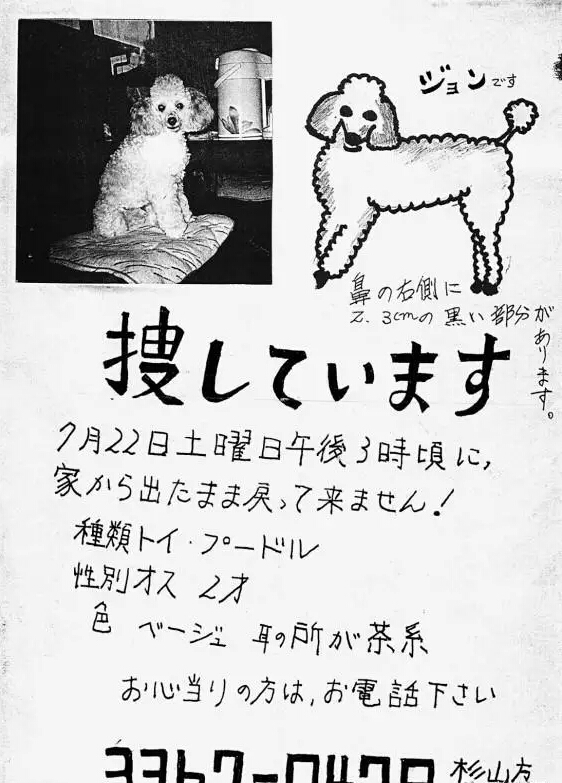 ジョンです
鼻の右側に
2.3cmの黒い部分があります。
捜しています
7月22日土曜日午後3時頃に,
家から出たまま戻って来ません!
種類トイ・プードル
性別オス 2才
色 ベージュ 耳の所が茶系
お心当りの方は,お電話下さい
杉山方